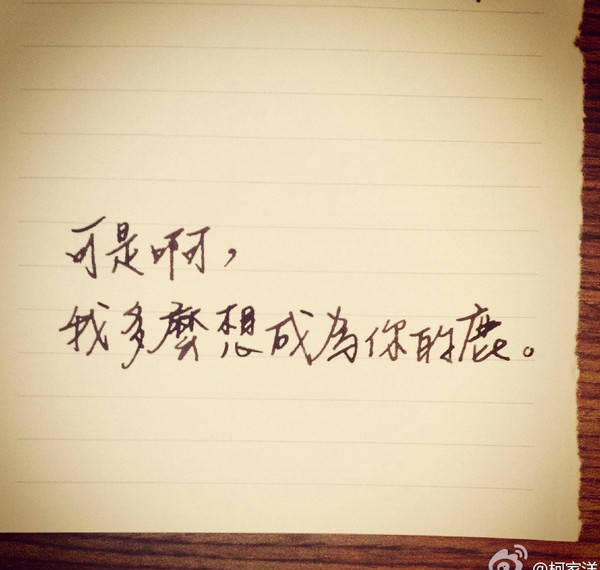 可是啊，
我多麼想成為你的鹿。
@柯家洋